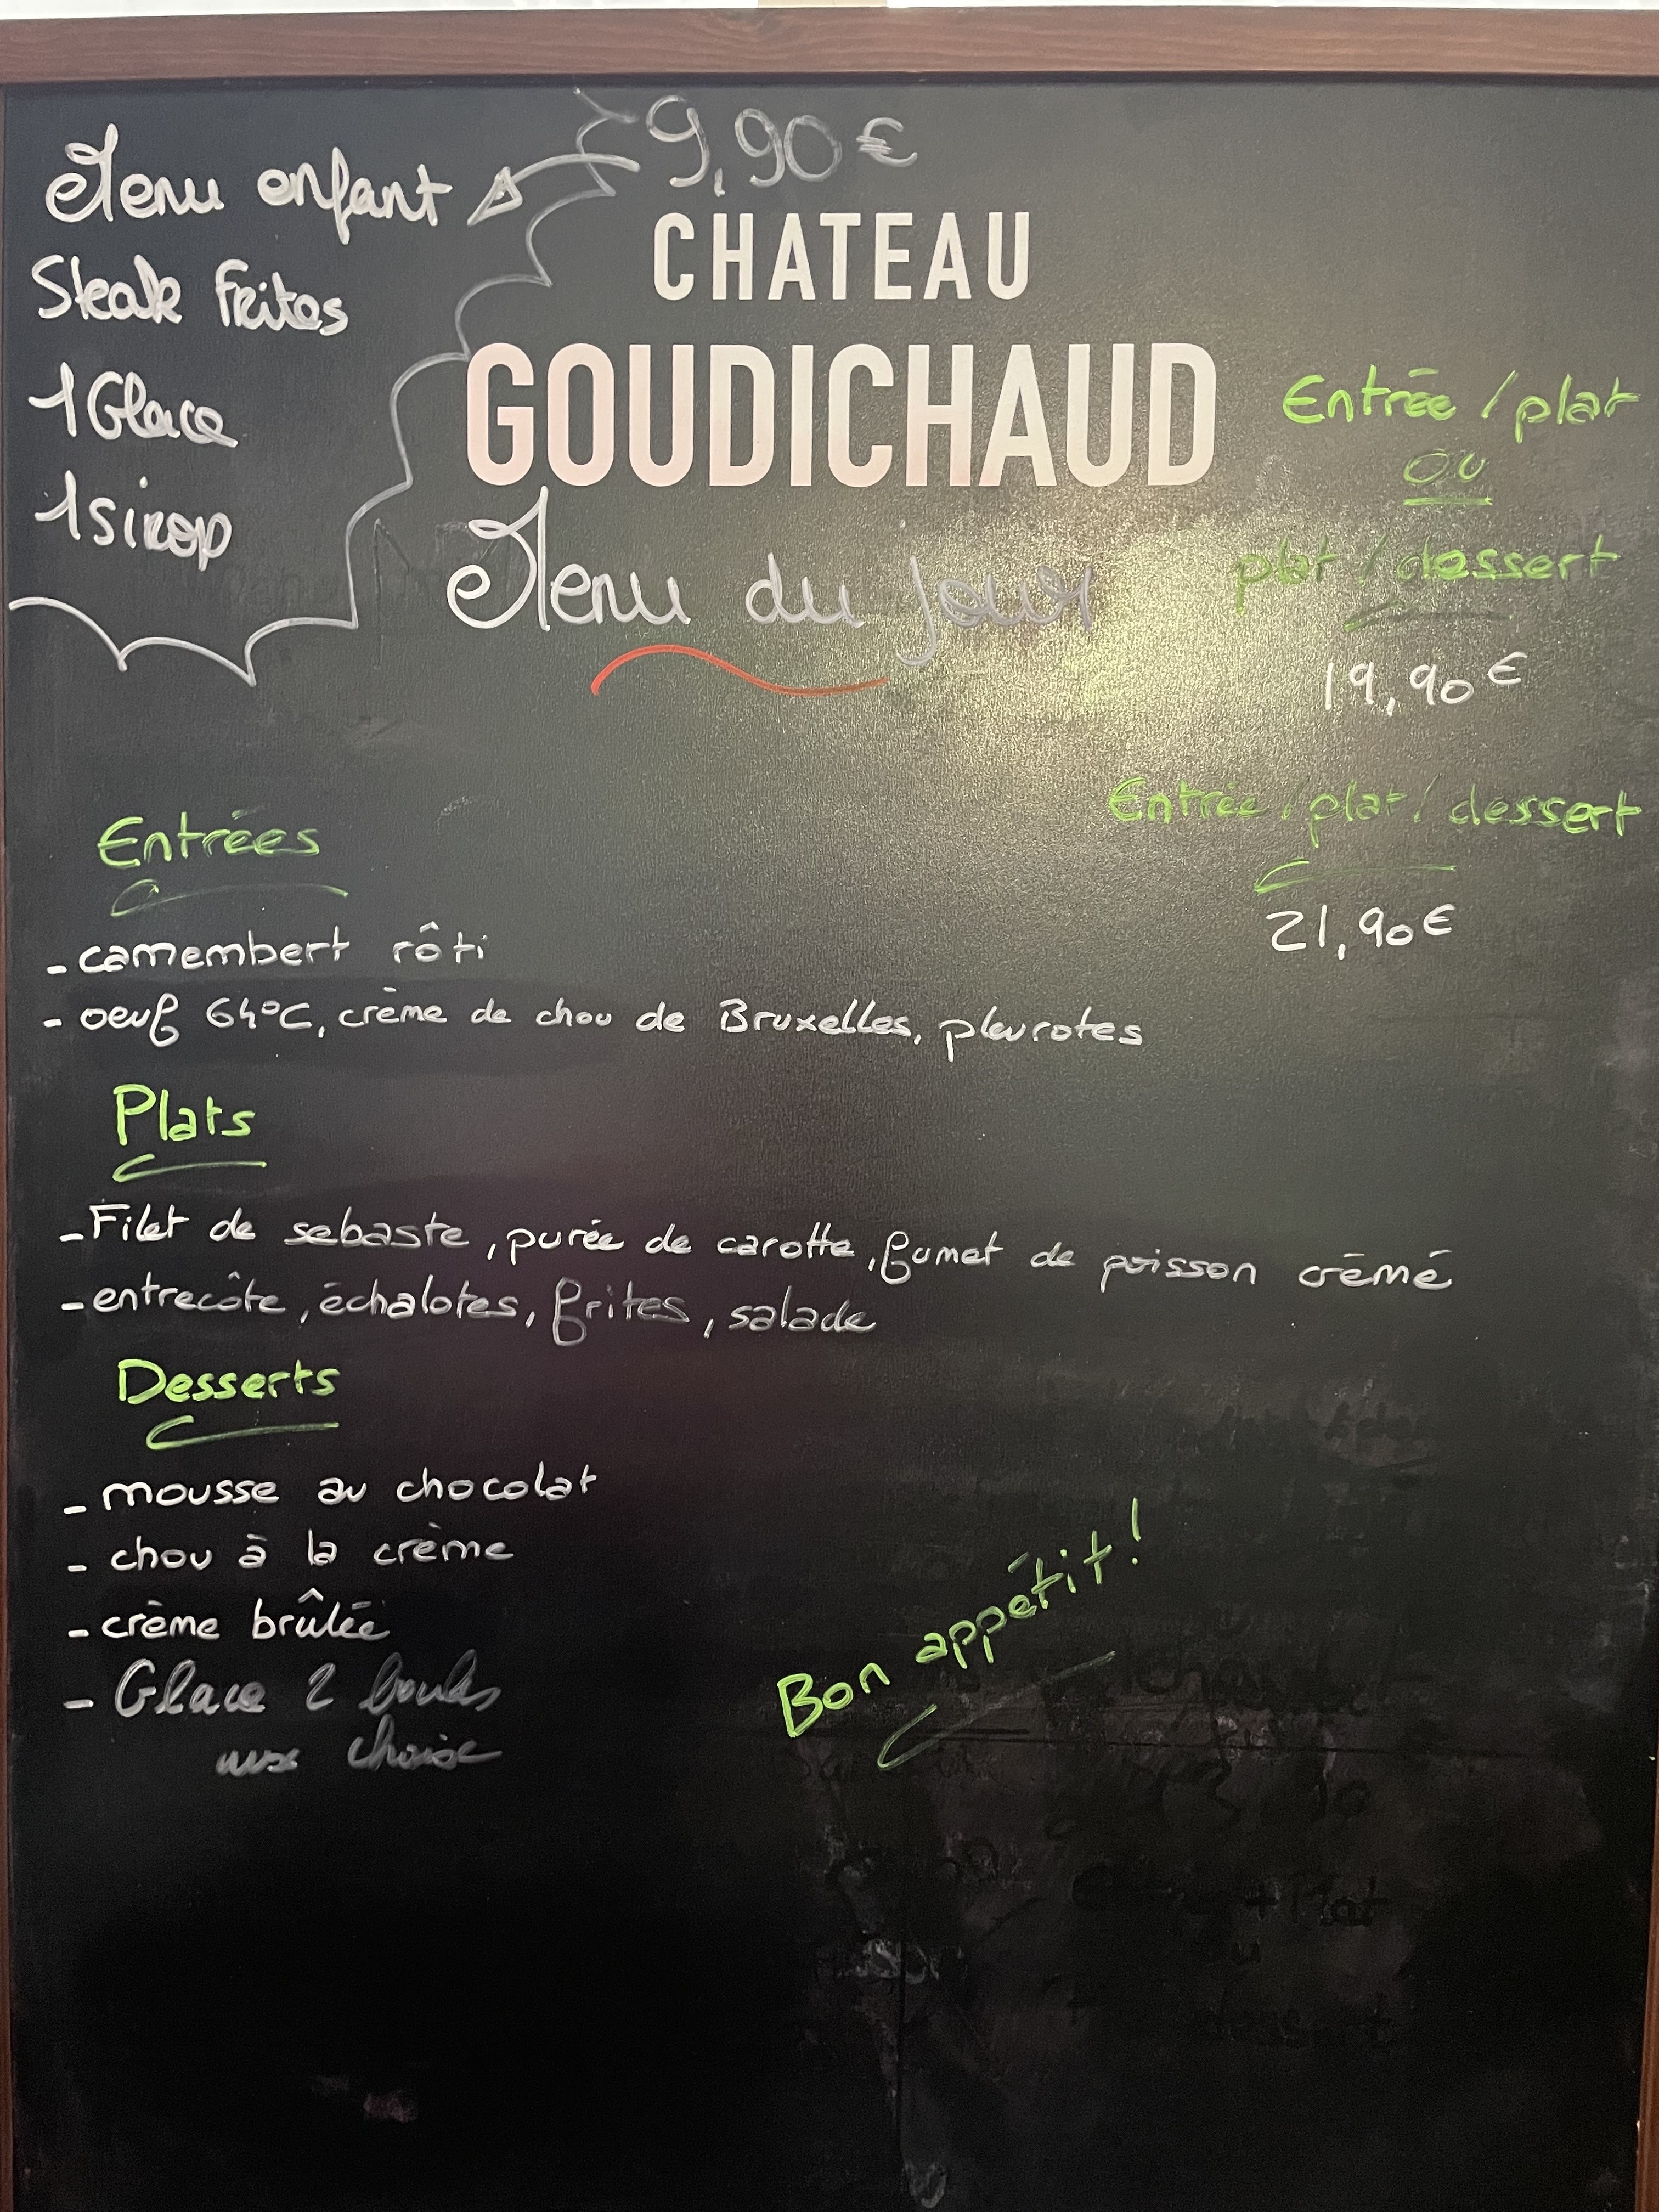 9,90 €
Menu enfant
Steak Frites
1 Glace
1 sirop
CHATEAU
GOUDICHAUD
Menu du jour
Entrée / plat
ou
plat / dessert
19,90 €
Entrée / plat / dessert
21,90 €
Entrées
- camembert rôti
- oeuf 64°C, crème de chou de Bruxelles, pleurotes
Plats
- Filet de sebaste, purée de carotte, fumet de poisson crémé
- entrecôte, échalotes, frites, salade
Desserts
- mousse au chocolat
- chou à la crème
- crème brûlée
- Glace 2 boules
aux choix
Bon appétit !